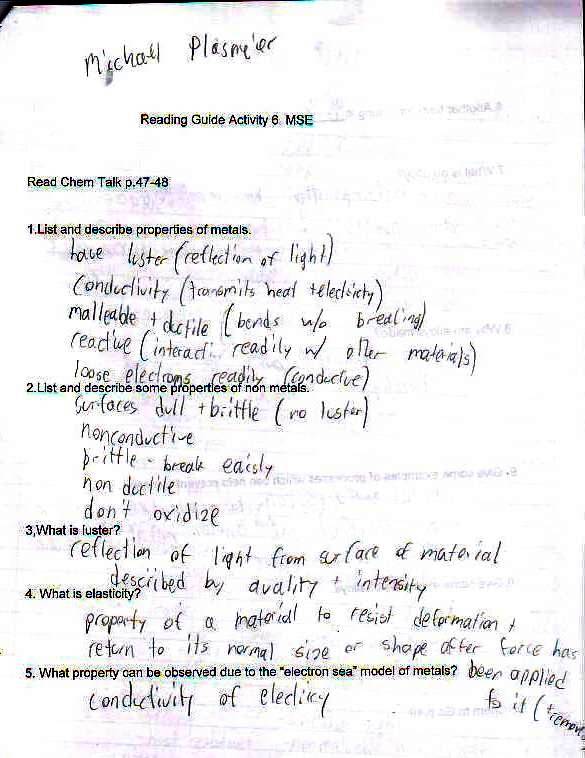 Michael Plasmeier
Reading Guide Activity 6 MSE
Read Chem Talk p.47-48
1.List and describe properties of metals.
have luster (reflection of light)
Conductivity (transmits heat + electricity)
malleable + ductile (bends w/o breaking)
reactive (interact readily w/ other materials)
loose electrons readily (conductive)
2.List and describe some properties of non metals.
Surfaces dull + brittle (no luster)
nonconductive
brittle - break eaisly
non ductile
don't oxidize
3,What is luster?
reflection of light from surface of material
described by quality + intensity
4. What is elasticity?
property of a material to resist deformation +
return to its normal size or shape after force has
been applied
to it (+ remov
5. What property can be observed due to the "electron sea" model of metals?
conductivity of electricy